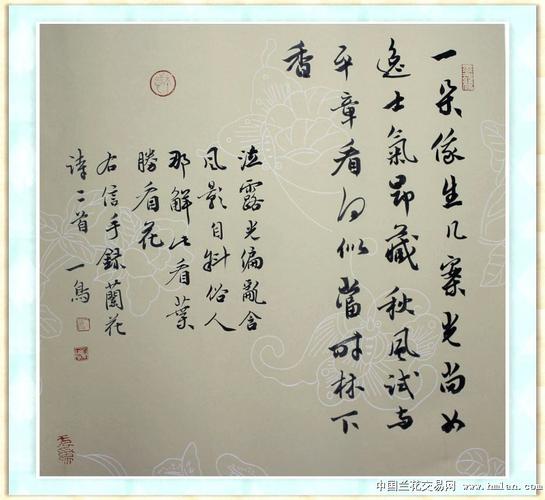 一朵俄生几案光尚如
逸士氣昂藏秋風試与
平章看何似當时林下
香
泣露光偏亂含
風影自斜俗人
那解此看葉
勝看花
右信手録蘭花
詩二首 一
中国兰花交易网 www.hmlan.com